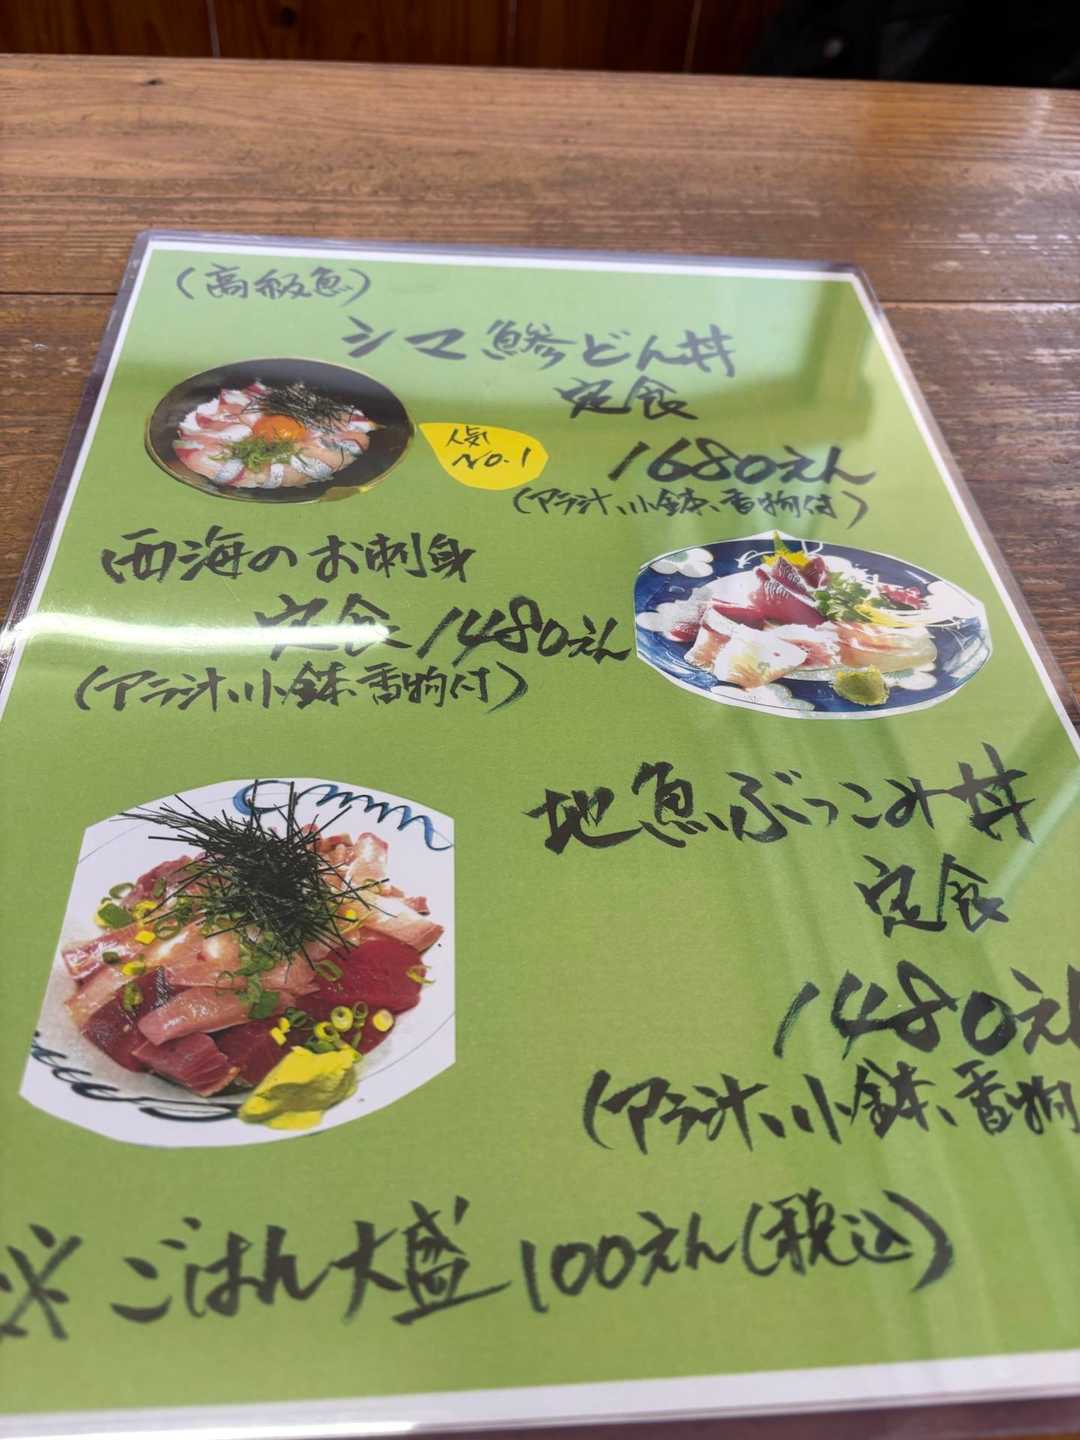 (高級魚)
シマ鯵どん丼
定食
人気
NO.1
1680えん
(アラ汁、小鉢、香物付)
西海のお刺身
定食1480えん
(アラ汁、小鉢、香物付)
地魚ぶっこみ丼
定食
1480えん
(アラ汁、小鉢、香物
※ごはん大盛100えん(税込)